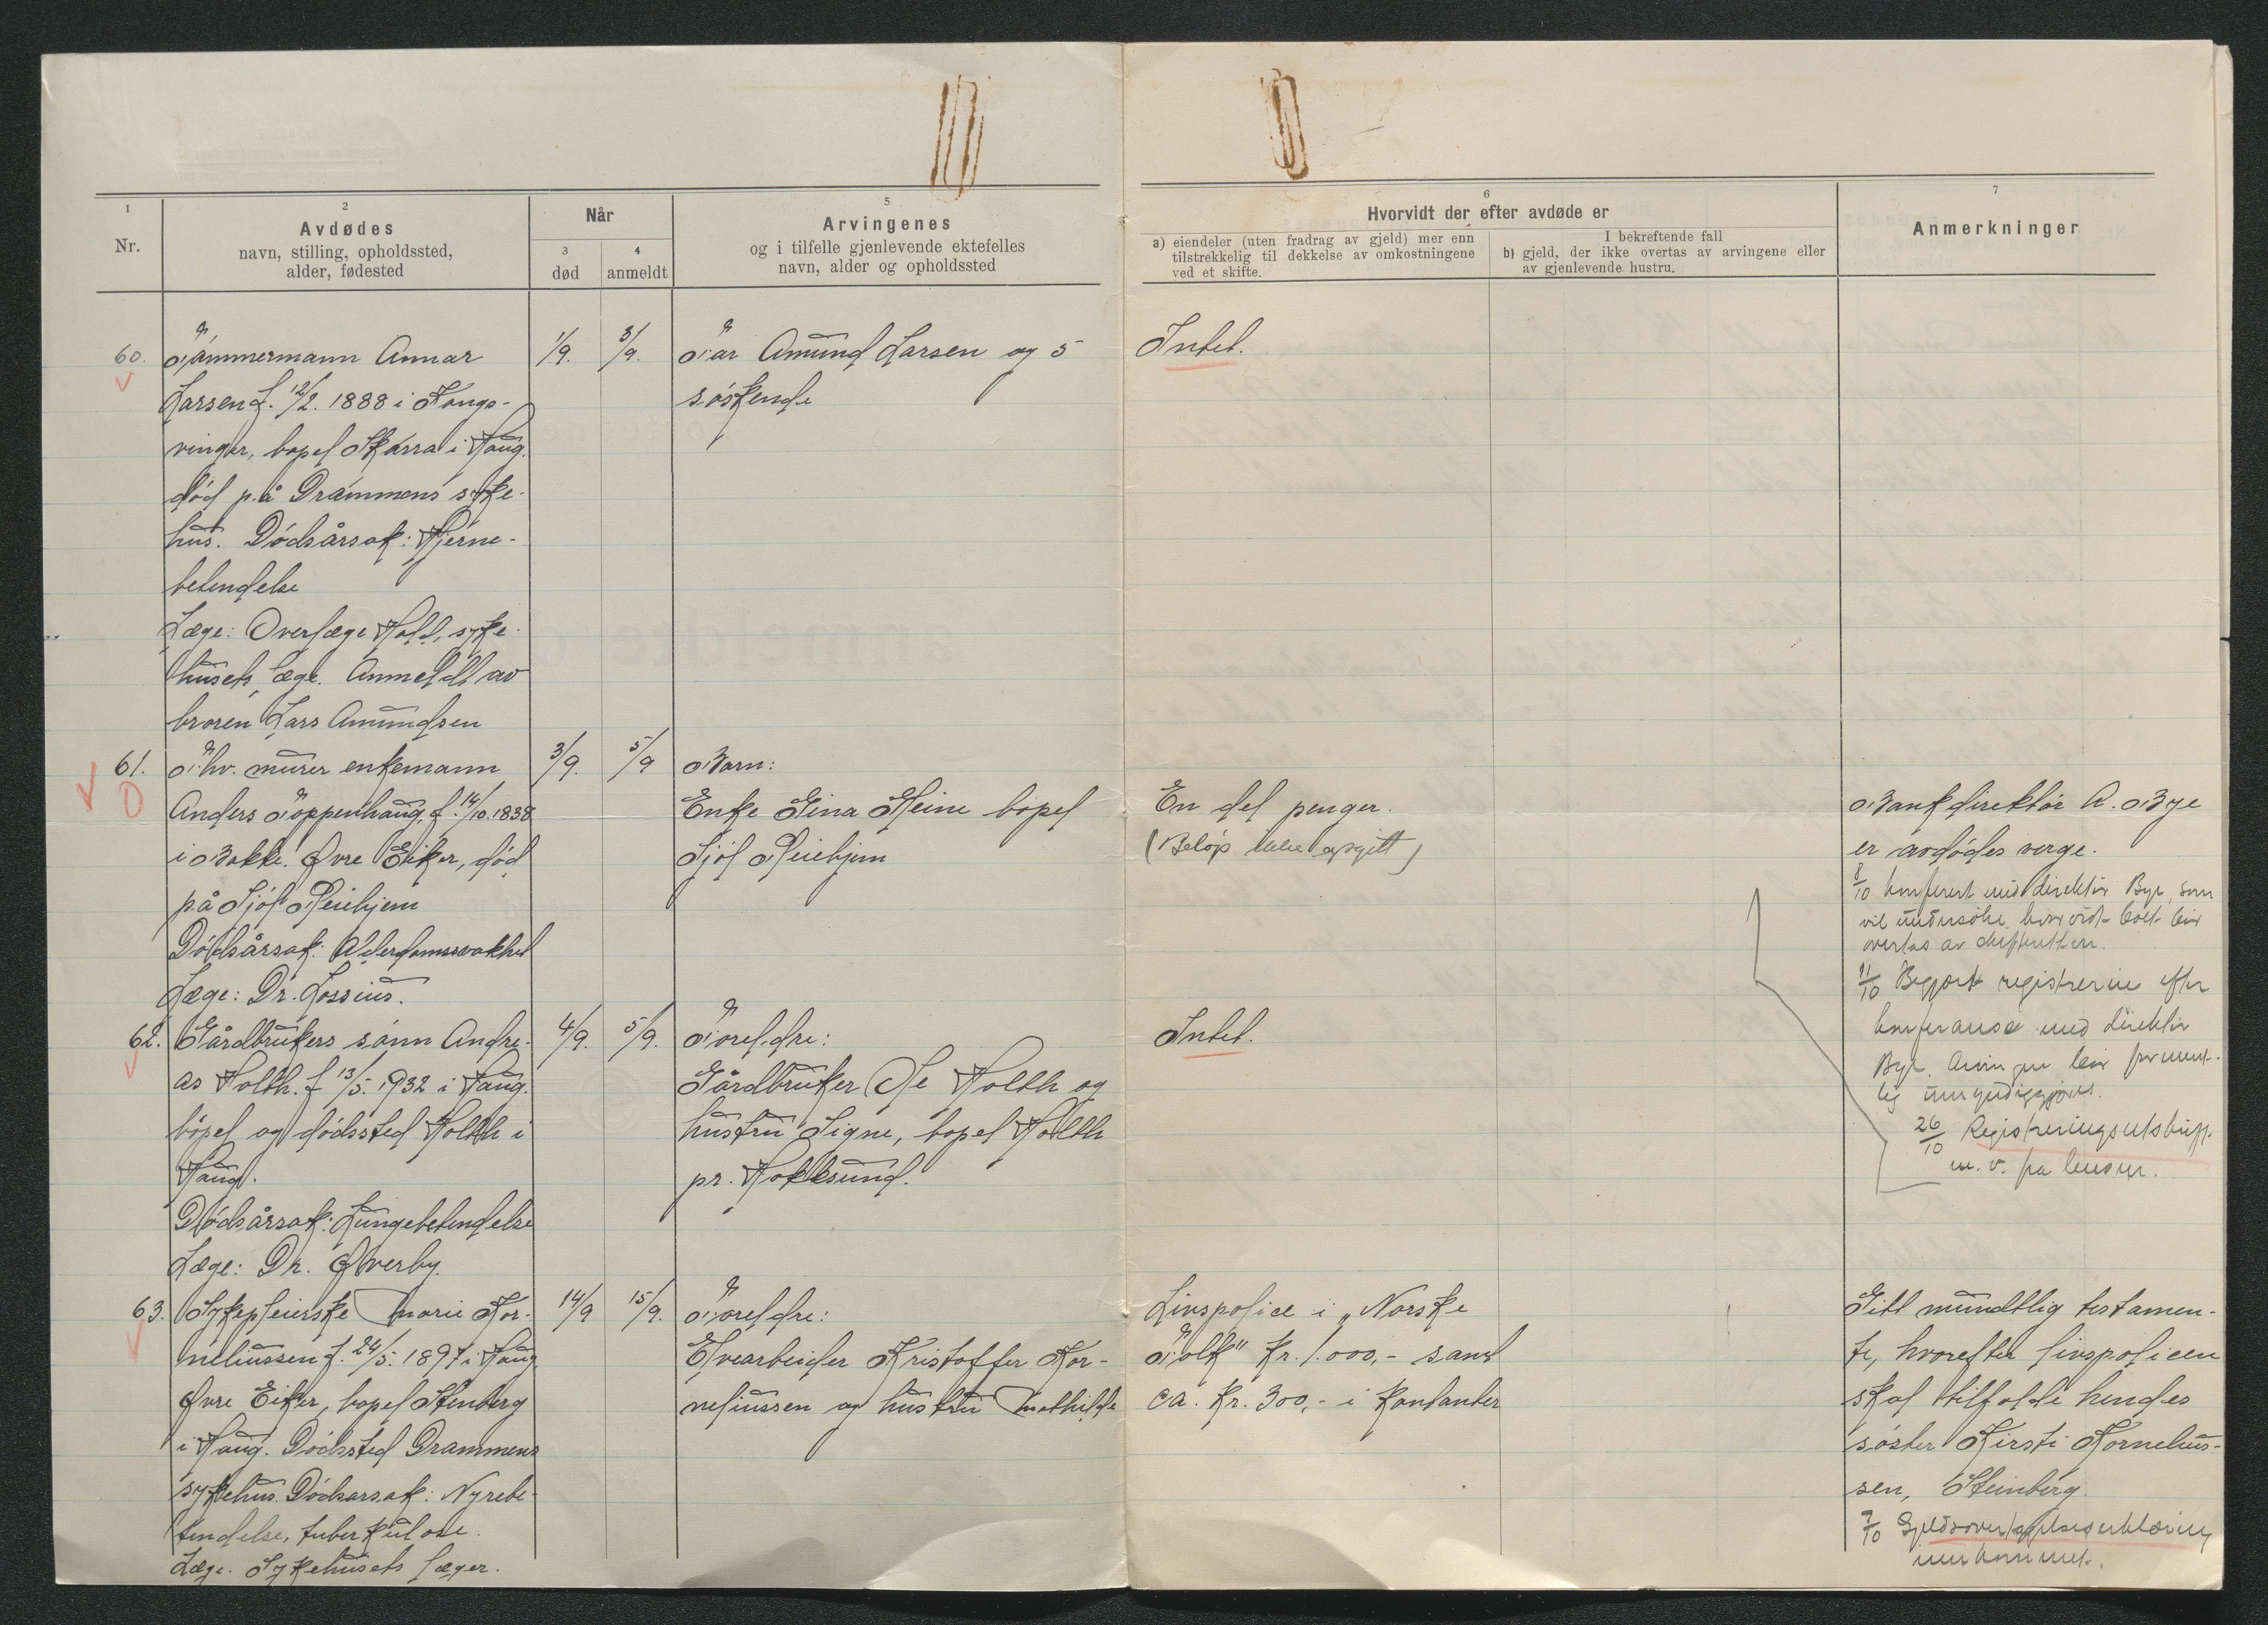 1
Nr.
2
Avdødes
navn, stilling, opholdssted,
alder, fødested
Når
3
død
4
anmeldt
5
Arvingenes
og i tilfelle gjenlevende ektefelles
navn, alder og opholdssted
6
Hvorvidt der efter avdøde er
a) eiendeler (uten fradrag av gjeld) mer enn
tilstrekkelig til dekkelse av omkostningene
ved et skifte.
I bekreftende fall
b) gjeld, der ikke overtas av arvingene eller
av gjenlevende hustru.
7
Anmerkninger
60.
Tømmermann Annar
Larsen f. 12/2. 1888 i Kongs-
vinger, bopel Skarra i Haug.
død på Drammens syke-
hus. Dødsårsak: Hjerne-
betendelse
Læge: Overlæge Hold, syke-
husets læge. Anmeldt av
broren Lars Amundsen
1/9.
3/9.
Far Amund Larsen og 5
søskende
Intet.
61.
Fhv. murer enkemann
Anders Toppenhaug, f. 14/10. 1838
i Bakke. Øvre Eiker, død
på Sjøl Pleiehjem
Dødsårsak: Alderdomssvakhet
Læge: Dr. Lossius.
3/9.
5/9
Barn:
Enke Gina Heine bopel
Sjøl Pleiehjem
En del penger.
(Beløp ikke opgitt)
Bankdirektør A. Bye
er avdødes verge.
8/10 konferert med direktør Bye, som
vil undersøke hvorvidt boet blir
overtas av
11/10 Begjært registrering efter
konferanse med direktør
Bye. Arvingen blir forment-
lig umyndiggjort.
26/10 Registreringsutskrift
m. v. fra lensm.
62.
Gårdbrukers sønn Andre-
as Holth. f 13/5. 1932 i Haug.
bopel og dødssted Holth i
Haug.
Dødsårsak: Lungebetendelse
Læge: Dr. Øverby.
4/9.
5/9.
Foreldre:
Gårdbruker Ole Holth og
hustru Signe, bopel Holth
pr. Hokksund.
Intet.
63.
Sykepleierske Marie Kor-
neliussen f. 24/5. 1897 i Haug
Øvre Eiker, bopel Stenberg
i Haug. Dødssted Drammens
sykehus. Dødsårsak: Nyrebe-
tendelse, tuberkulose.
Læge. Sykehusets læger.
14/9
15/9.
Foreldre:
Elvearbeider Kristoffer Kor-
neliussen og hustru Mathilde
Livspolice i "Norske
Folk" kr. 1.000,- samt
ca. kr. 300,- i kontanter
Gitt mundtlig testamen-
te, hvorefter livspolicen
skal tilfalde hendes
søster Kirsti Kornelius-
sen, Steinberg.
7/10 Gjeldsovertagelseserklæring
innkommet.